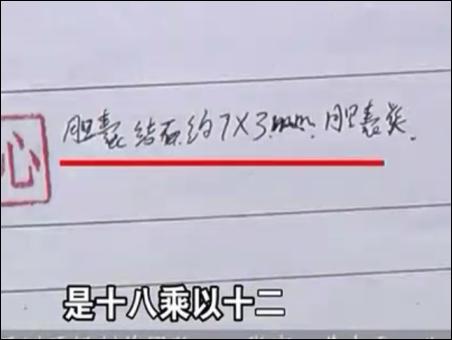 胆囊结石约7×3mm.胆囊炎.
心
是十八乘以十二